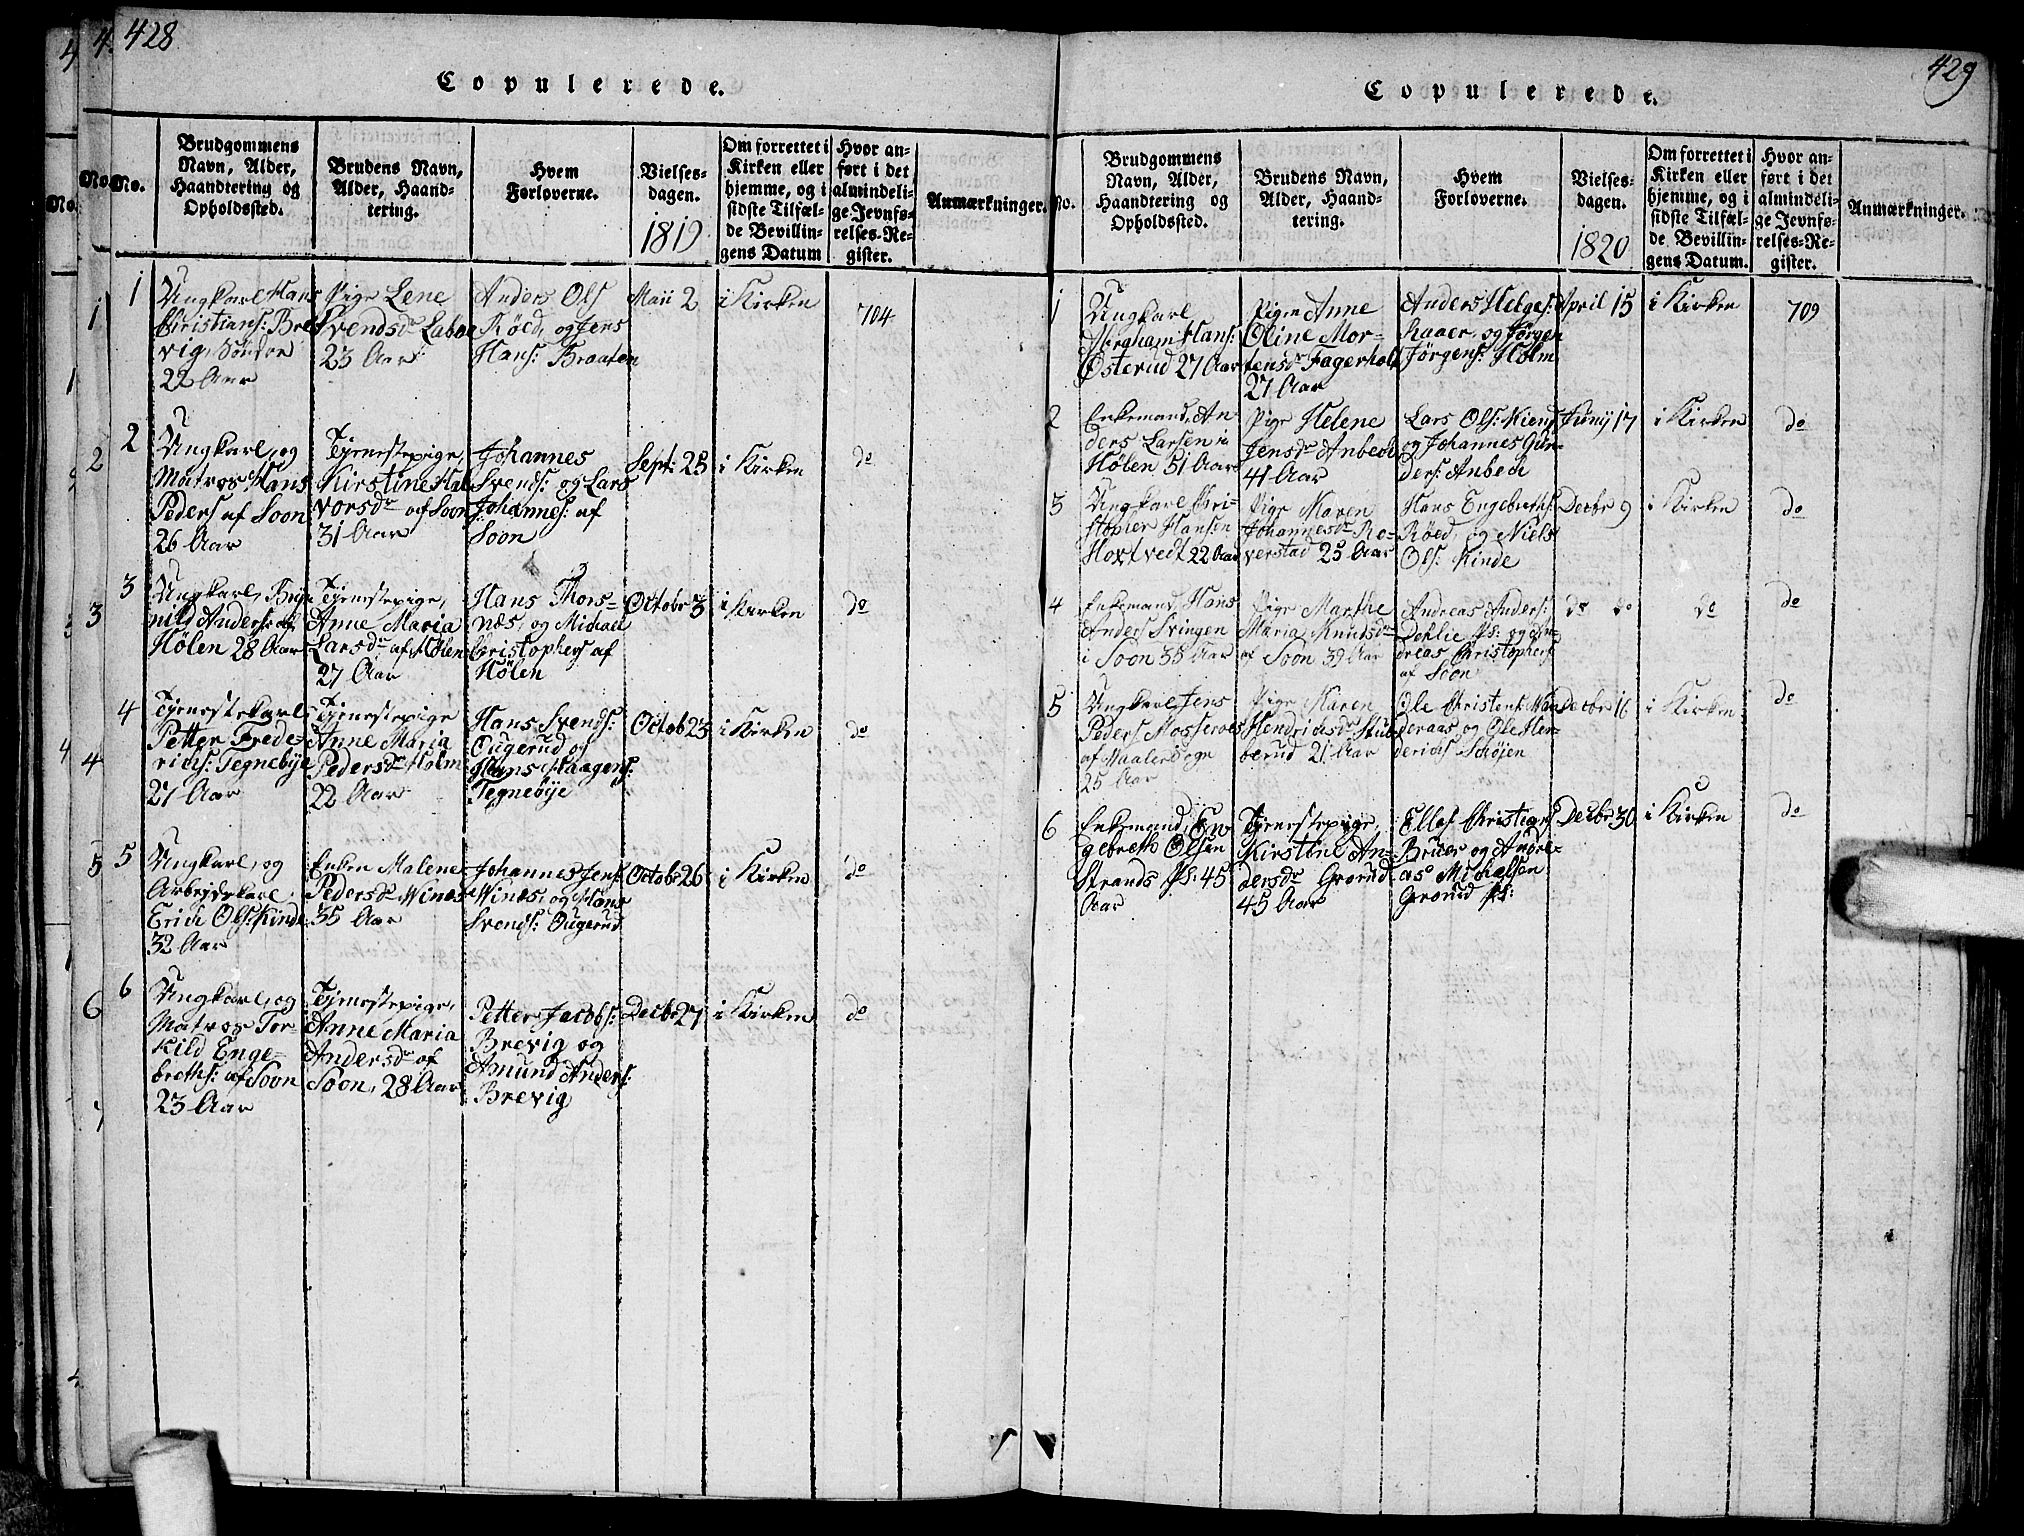 428
Copulerede.
No.
Brudgommens
Navn, Alder,
Haandtering og
Opholdssted.
Brudens Navn,
Alder, Haand-
tering.
Hvem
Forloverne.
Vielses-
dagen.
1819
Om forrettet i
Kirken eller
hjemme, og i
sidste Tilfæl-
de Bevillin-
gens Datum
Hvor an-
ført i det
almindeli-
ge Jevnfø-
relses-Re-
gister.
Anmærkninger.
1
Ungkarl Hans
Christians: Bre
vig, Søndre
22 Aar
Pige Lene
Svendsdr Labo
23 Aar
Anders Ols
Røed, og Jens
Hans: Braaten
Maii 2
i Kirken
704
2
Ungkarl, og
Matros Hans
Peders af Soon
26 Aar
Tjenestepige,
Kirstine Hal
vorsdr af Soon
31 Aar
Johannes
Svends: og Lars
Johannes: af
Soon
Sept: 25
i Kirken
do
3
Ungkarl, Bryn
nild Anders: af
Hølen 28 Aar
Tjenestepige,
Anne Maria
Larsdr af Hølen
27 Aar
Hans Thors-
næs, og Michael
Christophers af
Hølen
Octobr 3
i Kirken
do
4
Tjenestekarl
Petter Frede-
richs: Tegnebye
27 Aar
Tjenestepige
Anne Maria
Pedersdr Holm
22 Aar
Hans Svends:
Ougerud og
Hans Haagens:
Tegnebye
Octob 23
i Kirken
do
5
Ungkarl, og
Arbeydskarl
Erich Ols: Kinde
32 Aar
Enken Malene
Pedersdr Winæs
35 Aar
Johannes Jens:
Winæs, og Hans
Svends: Ougerud
Octobr 26
i Kirken
do
6
Ungkarl, og
Matros Tor-
kild Enge-
breths: af Soon
23 Aar
Tjenestepige,
Anne Maria
Andersdr af
Soon, 28 Aar
Petter Jacobs:
Brevig og
Amund Anders:
Brevig
Decbr 27
i Kirken
do
429
Copulerede.
No.
Brudgommens
Navn, Alder,
Haandtering og
Opholdssted.
Brudens Navn,
Alder, Haand-
tering.
Hvem
Forloverne.
Vielses-
dagen.
1820
Om forrettet i
Kirken eller
hjemme, og i
sidste Tilfæl-
de Bevillin-
gens Datum.
Hvor an-
ført i det
almindeli-
ge Jevnfø-
relses-Re-
gister.
Anmærkninger.
1
Ungkarl
Abrgham Hans:
Østerud 27 Aar
Pige Anne
Oline Mor-
tensdr Fagerholt
27 Aar
Anders Helges:
Haaer, og Jørgen
Jørgens: Holm
April 15
i Kirken
709
2
Enkemand, An
ders Larsen i
Hølen 51 Aar
Pige Helene
Jensdr Anbech
41 Aar
Lars Ols: Kiens
og Johannes Gun
ders: Anbech
Juny 17
i Kirken
do
3
Ungkarl Chri-
stopher Hansen
Hoxtvedt 22 Aar
Pige Maren
Johannesdr Ro-
verstad 25 Aar
Hans Engebreths:
Røed, og Niels
Ols: Kinde
Decbr 9
i Kirken
do
4
Enkemand Hans
Anders Svingen
i Soon 38 Aar
Pige Marthe
Maria Knudsdr
af Soon 39 Aar
Andreas Anders:
Dehlie Ps: og An-
dreas Christophers
af Soon
do do
do
do
5
Ungkarl Jens
Peders Mosseroes
af Waaler Sogn
25 Aar
Pige Karen
Hendrichsdr Stub-
berud 21 Aar
Ole Christens: Wan
deraas, og Ole Hen-
derichs Schøjen
Decbr 16
i Kirken
do
6
Enkemand, En
gebreth Olsen
Strands Ps: 45
Aar
Tjenestepige,
Kirstine An-
dersdr Grorud
45 Aar
Ellef Christians
Bruer og Andre-
as Michelsen
Grorud Ps:
Decbr 30
i Kirken
do